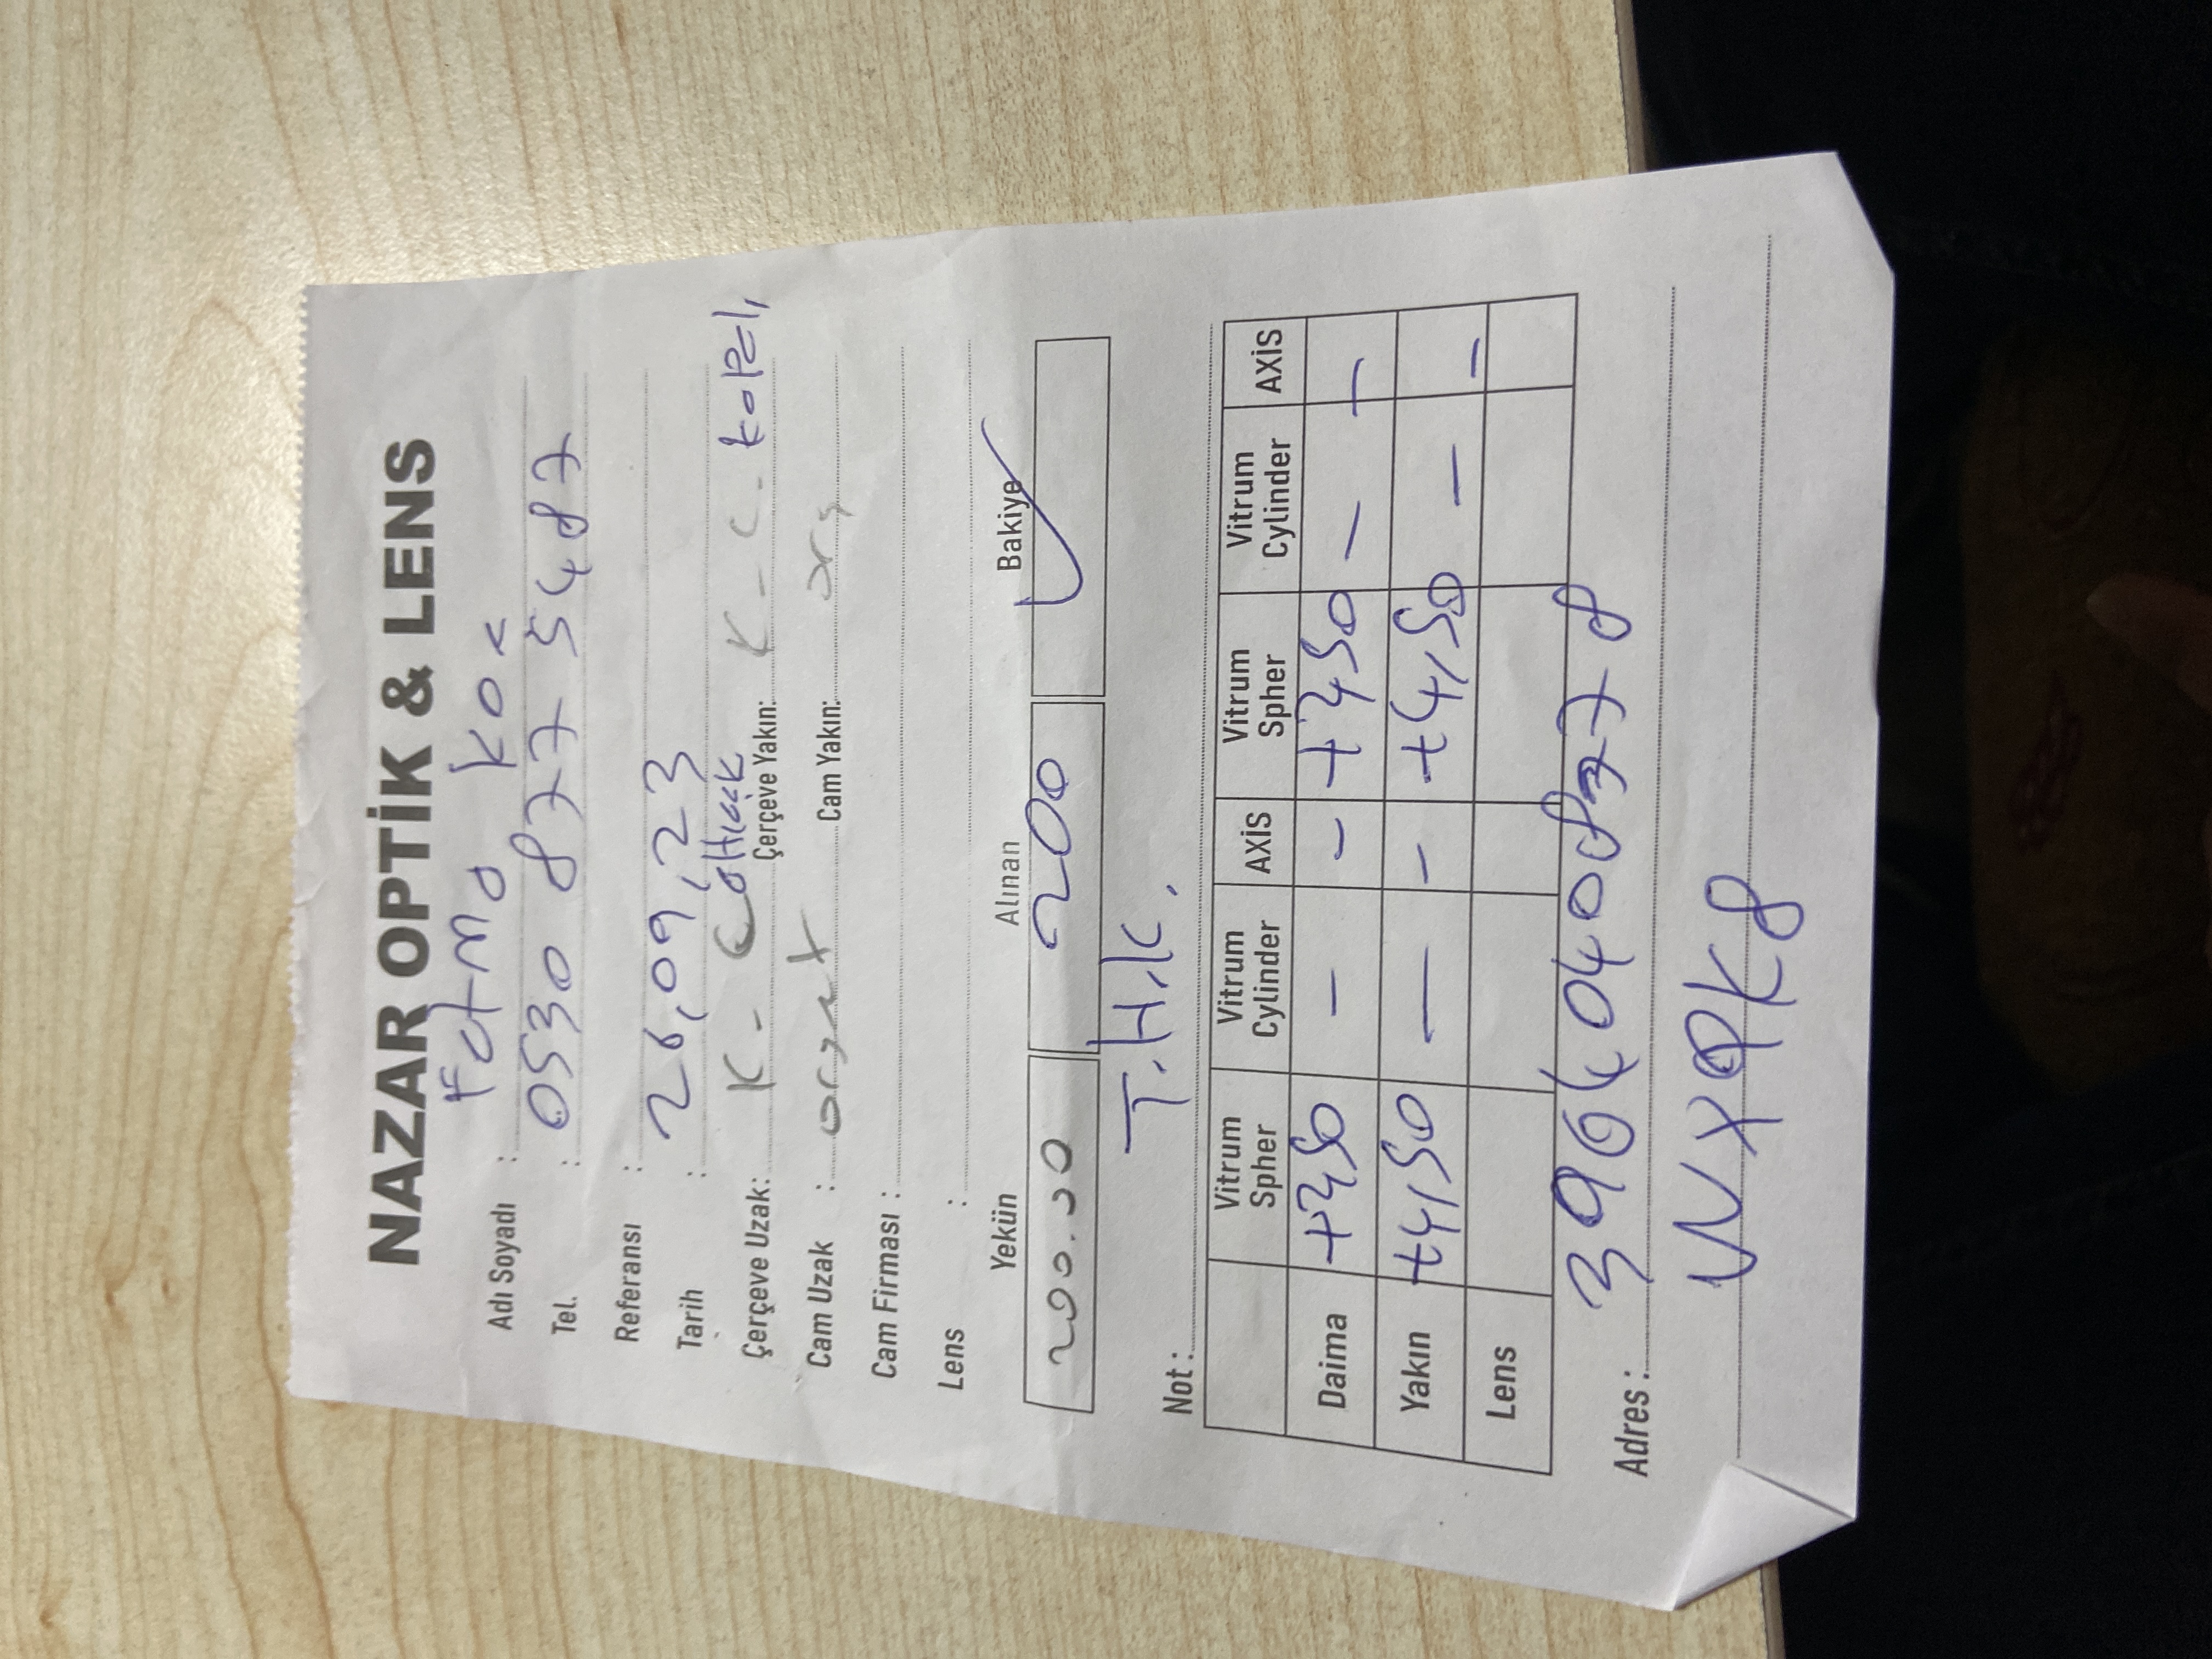 NAZAR OPTİK & LENS
Adı Soyadı : Fatma Koc
Tel. : 0530 877 5487
Referansı :
Tarih : 26,09,23
Çerçeve Uzak: K - C Çerçeve Yakın: K - C -
Cam Uzak : Cam Yakın: org
Cam Firması :
Lens :
Yekün Alınan Bakiye
200.00 200 ✓
Not : T.H.K.
Vitrum Spher Vitrum Cylinder AXİS Vitrum Spher Vitrum Cylinder AXİS
Daima +2,50 - - +2,50 - -
Yakın +4,50 - - +4,50 - -
Lens
Adres : 39640408778
WX9K8